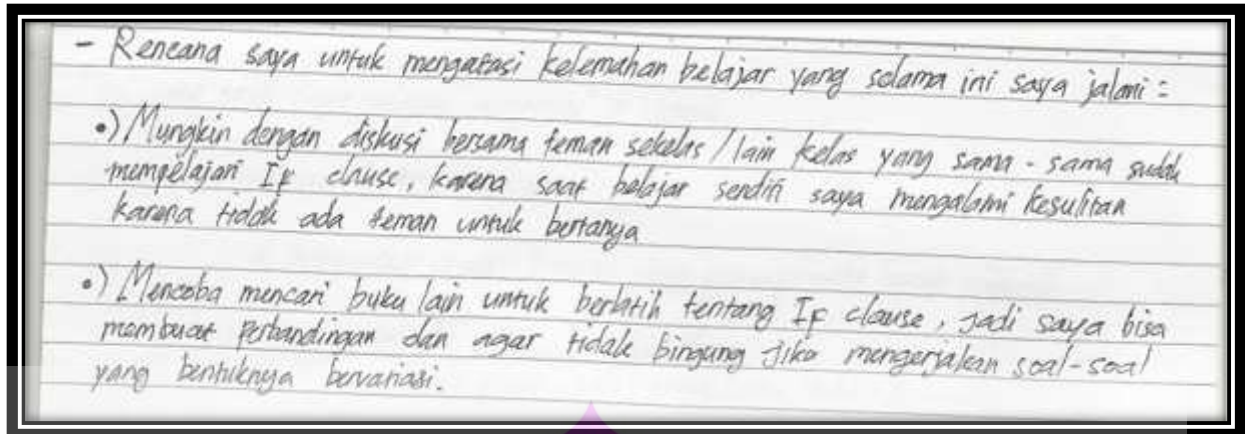 - Rencana saya untuk mengatasi kelemahan belajar yang selama ini saya jalani :
•) Mungkin dengan diskusi bersama teman sekelas / lain kelas yang sama - sama sudah
mempelajari If clause, karena saat belajar sendiri saya mengalami kesulitan
karena tidak ada teman untuk bertanya
•) Mencoba mencari buku lain untuk berlatih tentang If clause, jadi saya bisa
membuat perbandingan dan agar tidak bingung jika mengerjakan soal-soal
yang bentuknya bervariasi.